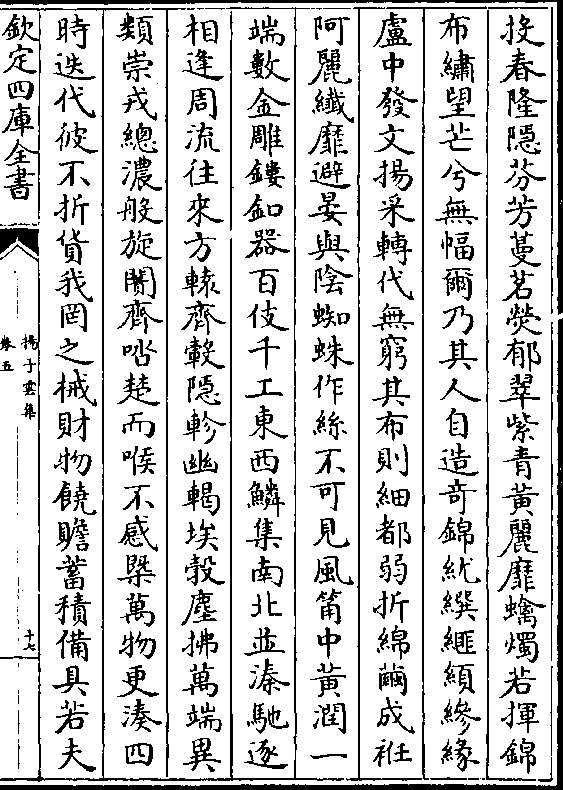 㧞春隆隠芬芳蔓茗熒郁翠紫青黃麗靡螭燭若揮錦
布繡望芒兮無幅爾乃其人自造竒錦紌繏䋿䋶縿緣
盧中發文揚采轉代無窮其布則細都弱折綿繭成衽
阿麗纎靡避晏與陰蜘蛛作絲不可見風筩中黃潤一
端數金雕鏤釦器百伎千工東西鱗集南北並湊馳逐
相逢周流往來方轅齊轂隠軫幽輵埃㪇塵拂萬端異
類崇戎總濃般旋闠齊㗳楚而喉不感槩萬物更湊四
時迭代彼不折貨我罔之械財物饒贍蓄積備具若夫
欽定四庫全書
揚子雲集
卷五
十七